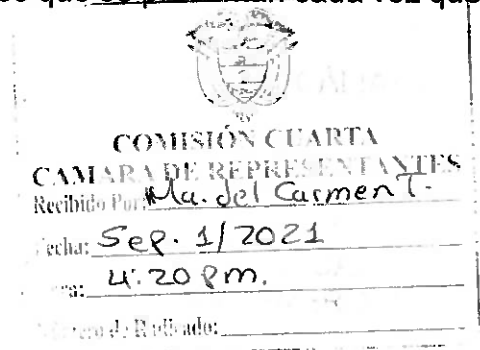 cada vez que
COMISIÓN CUARTA
CAMARA DE REPRESENTANTES
Recibido Por: Ma. del Carmen T.
Fecha: Sep. 1/2021
4:20 pm.
de Radicado: